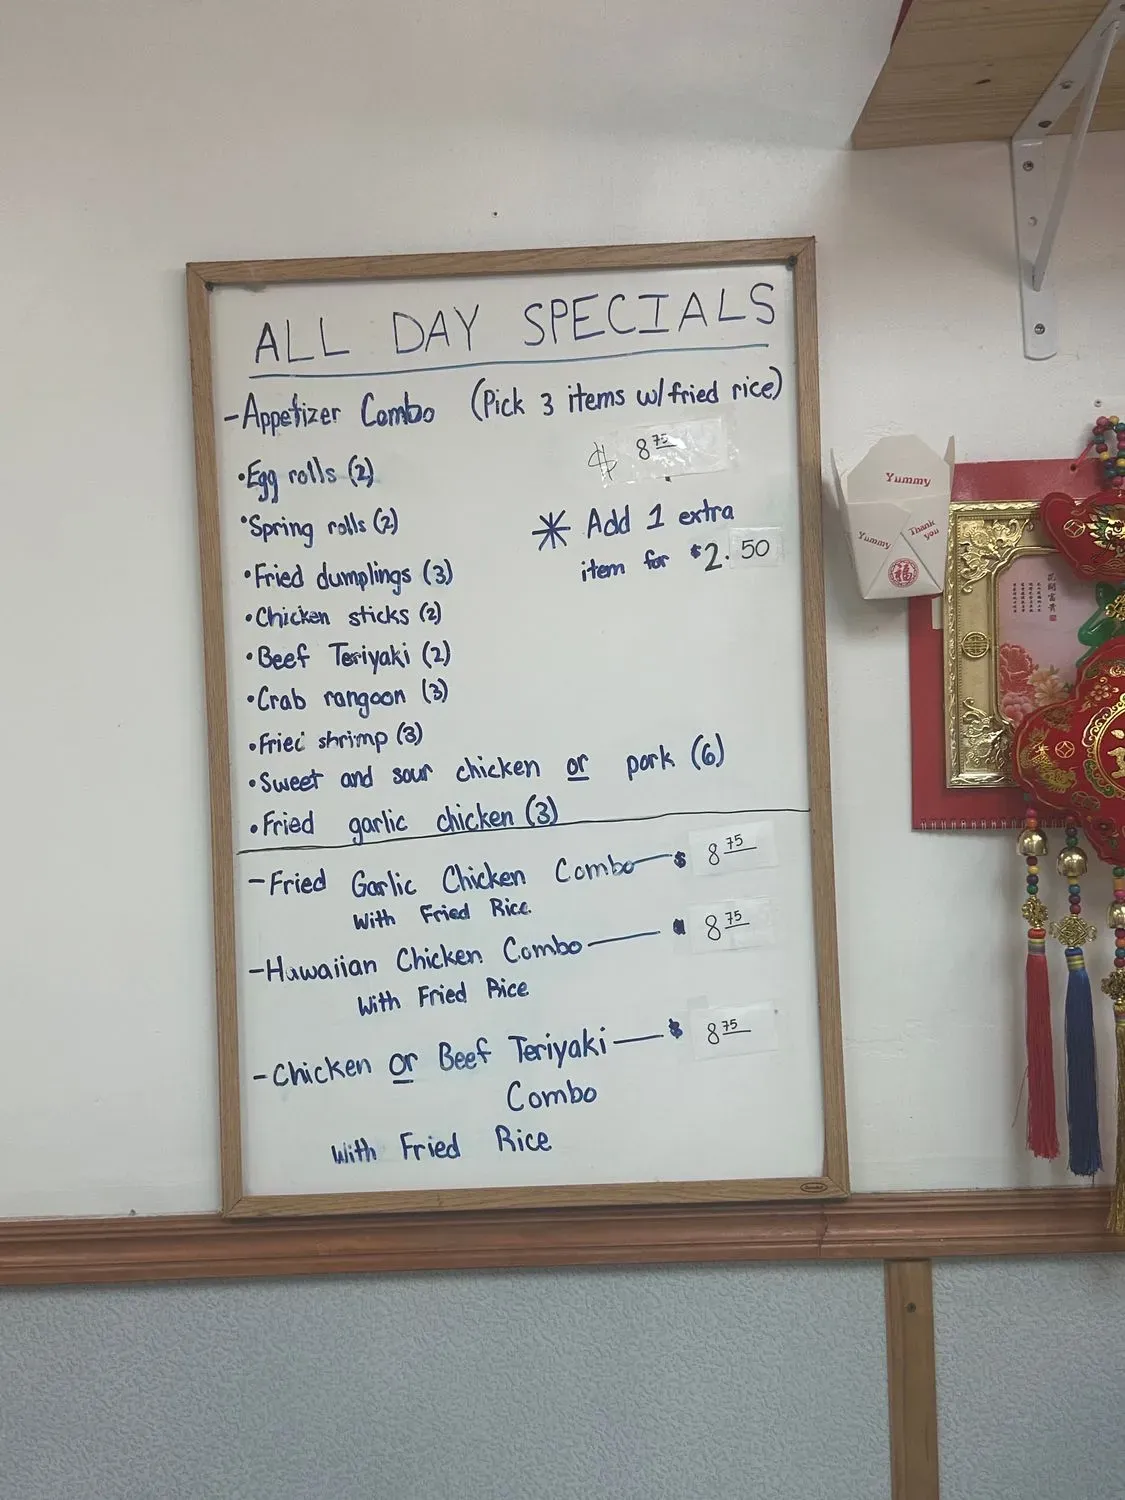 ALL DAY SPECIALS
-Appetizer Combo (Pick 3 items w/fried rice)
$ 8 75
•Egg rolls (2)
•Spring rolls (2)
* Add 1 extra
item for $2. 50
•Fried dumplings (3)
•Chicken sticks (2)
•Beef Teriyaki (2)
•Crab rangoon (3)
•Fried shrimp (3)
•Sweet and sour chicken or pork (6)
•Fried garlic chicken (3)
-Fried Garlic Chicken Combo — $ 8 75
With Fried Rice
-Hawaiian Chicken Combo — $ 8 75
With Fried Rice
-Chicken or Beef Teriyaki — $ 8 75
Combo
With Fried Rice
Yummy
Yummy
Thank
you
福
花開富貴